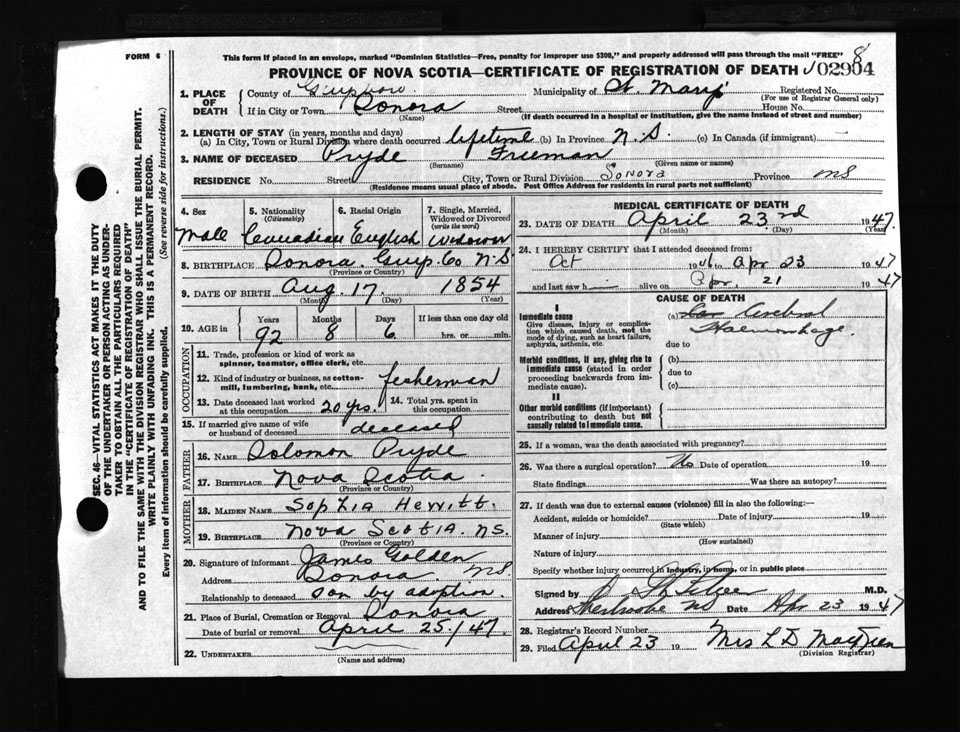 FORM 6
This form if placed in an envelope, marked "Dominion Statistics—Free, penalty for improper use $300," and properly addressed will pass through the mail "FREE"
8
PROVINCE OF NOVA SCOTIA—CERTIFICATE OF REGISTRATION OF DEATH 02904
1. PLACE OF DEATH County of Municipality of St. Marys Registered No.
(For use of Registrar General only)
If in City or Town Sonora Street House No.
(Name) (If death occurred in a hospital or institution, give the name instead of street and number)
2. LENGTH OF STAY (in years, months and days)
(a) In City, Town or Rural Division where death occurred lifetime (b) In Province N.S. (c) In Canada (if immigrant) —
3. NAME OF DECEASED Pryde Freeman
(Surname) (Given name or names)
RESIDENCE No. Street City, Town or Rural Division Sonora Province NS
(Residence means usual place of abode. Post Office Address for residents in rural parts not sufficient)
4. Sex 5. Nationality (Citizenship) 6. Racial Origin 7. Single, Married, Widowed or Divorced (write the word)
Male Canadian English Widower
8. BIRTHPLACE Sonora. Guys. Co N.S
(Province or Country)
9. DATE OF BIRTH Aug. 17 1854
(Month) (Day) (Year)
10. AGE in Years Months Days If less than one day old
92 8 6 hrs. or min.
OCCUPATION
11. Trade, profession or kind of work as spinner, teamster, office clerk, etc.
12. Kind of industry or business, as cotton-mill, lumbering, bank, etc. fisherman
13. Date deceased last worked at this occupation 20 yrs. 14. Total yrs. spent in this occupation
15. If married give name of wife or husband of deceased deceased
FATHER
16. NAME Solomon Pryde
17. BIRTHPLACE Nova Scotia
(Province or Country)
MOTHER
18. MAIDEN NAME Sophia Hewitt.
19. BIRTHPLACE Nova Scotia. NS.
(Province or Country)
20. Signature of informant James Golden
Address Sonora. NS
Relationship to deceased son by adoption.
21. Place of Burial, Cremation or Removal Sonora
Date of burial or removal April 25/47.
22. UNDERTAKER
(Name and address)
MEDICAL CERTIFICATE OF DEATH
23. DATE OF DEATH April 23rd 1947
(Month) (Day) (Year)
24. I HEREBY CERTIFY that I attended deceased from:
Oct 1946 to Apr 23 1947
and last saw h alive on Apr. 21 1947
CAUSE OF DEATH
I
Immediate cause
Give disease, injury or complication which caused death, not the mode of dying, such as heart failure, asphyxia, asthenia, etc.
(a) Cerebral
Haemorrhage.
due to
Morbid conditions, if any, giving rise to immediate cause (stated in order proceeding backwards from immediate cause).
(b)
due to
(c)
II
Other morbid conditions (if important) contributing to death but not causally related to immediate cause.
25. If a woman, was the death associated with pregnancy?
26. Was there a surgical operation? No Date of operation 19
State findings Was there an autopsy?
27. If death was due to external causes (violence) fill in also the following:
Accident, suicide or homicide? Date of injury 19
(State which)
Manner of injury
(How sustained)
Nature of injury
Specify whether injury occurred in industry, in home, or in public place
Signed by M.D.
Address Sherbrooke NS Date Apr 23 1947
28. Registrar's Record Number
29. Filed April 23 19 Mrs L D
(Division Registrar)
SEC. 46—VITAL STATISTICS ACT MAKES IT THE DUTY
OF THE UNDERTAKER OR PERSON ACTING AS UNDER-
TAKER TO OBTAIN ALL THE PARTICULARS REQUIRED
IN THE "CERTIFICATE OF REGISTRATION OF DEATH"
AND TO FILE THE SAME WITH THE DIVISION REGISTRAR WHO SHALL ISSUE THE BURIAL PERMIT.
WRITE PLAINLY WITH UNFADING INK. THIS IS A PERMANENT RECORD.
Every item of information should be carefully supplied. (See reverse side for instructions.)